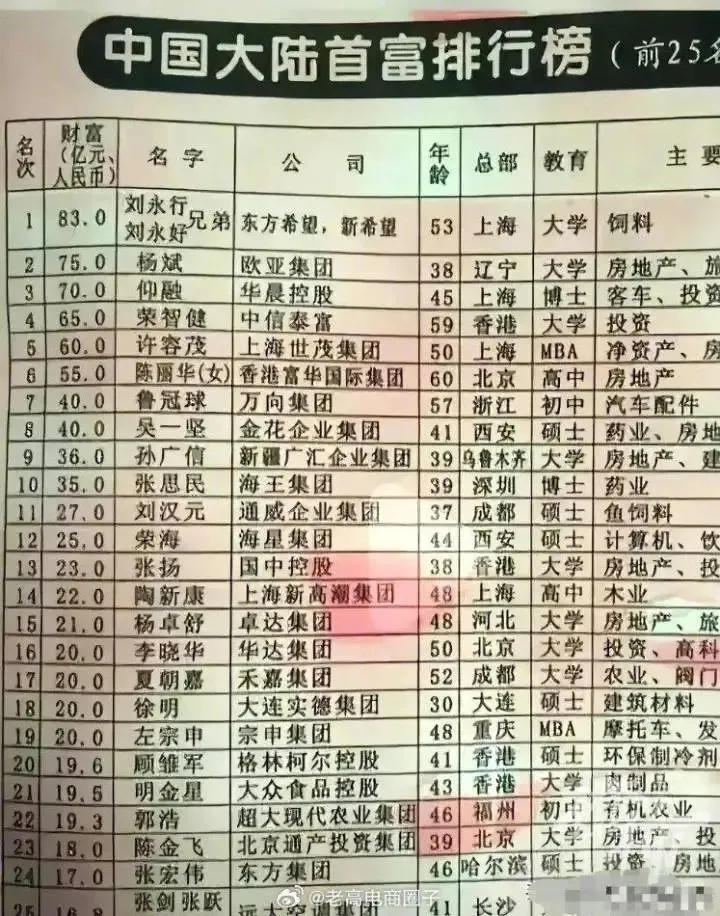 中国大陆首富排行榜(前25名
名次 财富(亿元、人民币) 名字 公司 年龄 总部 教育 主要
1 83.0 刘永行 刘永好 兄弟 东方希望,新希望 53 上海 大学 饲料
2 75.0 杨斌 欧亚集团 38 辽宁 大学 房地产、旅
3 70.0 仰融 华晨控股 45 上海 博士 客车、投资
4 65.0 荣智健 中信泰富 59 香港 大学 投资
5 60.0 许容茂 上海世茂集团 50 上海 MBA 净资产、房
6 55.0 陈丽华(女) 香港富华国际集团 60 北京 高中 房地产
7 40.0 鲁冠球 万向集团 57 浙江 初中 汽车配件
8 40.0 吴一坚 金花企业集团 41 西安 硕士 药业、房地
9 36.0 孙广信 新疆广汇企业集团 39 乌鲁木齐 大学 房地产、建
10 35.0 张思民 海王集团 39 深圳 博士 药业
11 27.0 刘汉元 通威企业集团 37 成都 硕士 鱼饲料
12 25.0 荣海 海星集团 44 西安 硕士 计算机、饮
13 23.0 张扬 国中控股 38 香港 大学 房地产、投
14 22.0 陶新康 上海新高潮集团 48 上海 高中 木业
15 21.0 杨卓舒 卓达集团 48 河北 大学 房地产、旅
16 20.0 李晓华 华达集团 50 北京 大学 投资、高科
17 20.0 夏朝嘉 禾嘉集团 52 成都 大学 农业、阀门
18 20.0 徐明 大连实德集团 30 大连 硕士 建筑材料
19 20.0 左宗申 宗申集团 48 重庆 MBA 摩托车、发
20 19.6 顾雏军 格林柯尔控股 41 香港 硕士 环保制冷剂
21 19.5 明金星 大众食品控股 43 香港 大学 肉制品
22 19.3 郭浩 超大现代农业集团 46 福州 初中 有机农业
23 18.0 陈金飞 北京通产投资集团 39 北京 大学 房地产、投
24 17.0 张宏伟 东方集团 46 哈尔滨 硕士 投资、房地
25 16.8 张剑 张跃 远大空调集团 41 长沙
@老高电商圈子